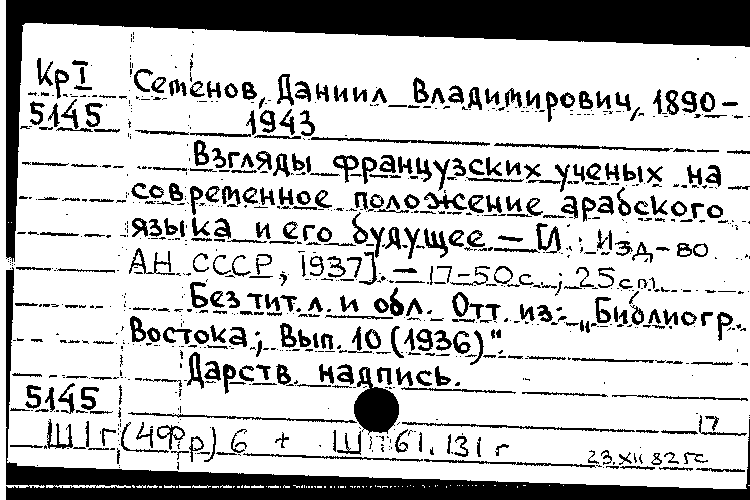 Кр I Семенов, Даниил Владимирович, 1890-
5145 1943
Взгляды французских ученых на
современное положение арабского
языка и его будущее - [Л.: Изд-во
АН СССР, 1937]. - 17-50 с.; 25 cm.
Без тит. л. и обл. Отт. из: „Библиогр.
Востока; Вып. 10 (1936)".
Дарств. надпись.
5145
17
Ш1г (499р) 6 + 61.131 г
23.XII 82